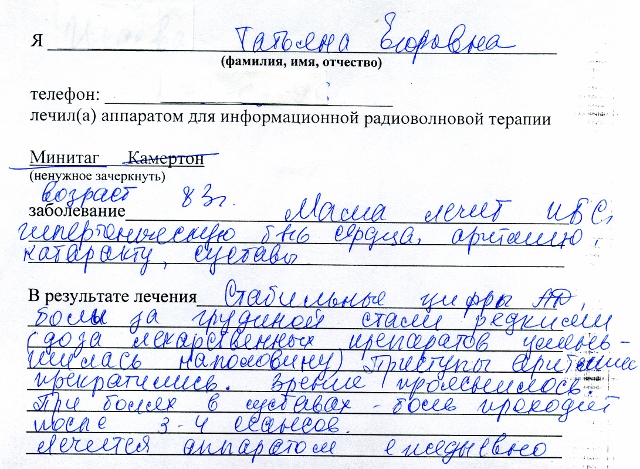 Я Татьяна Егоровна
(фамилия, имя, отчество)
телефон:
лечил(а) аппаратом для информационной радиоволновой терапии
Минитаг Камертон
(ненужное зачеркнуть)
возраст 83 г.
заболевание Мама лечит ИБС,
гипертоническую б-нь сердца, аритмию,
катаракту, суставы
В результате лечения Стабильные цифры АД,
боли за грудиной стали редкими
(доза лекарственных препаратов умень-
шилась наполовину) Приступы аритмии
прекратились. Зрение прояснилось.
При болях в суставах - боль проходит
после 3-4 сеансов.
Лечится аппаратом ежедневно